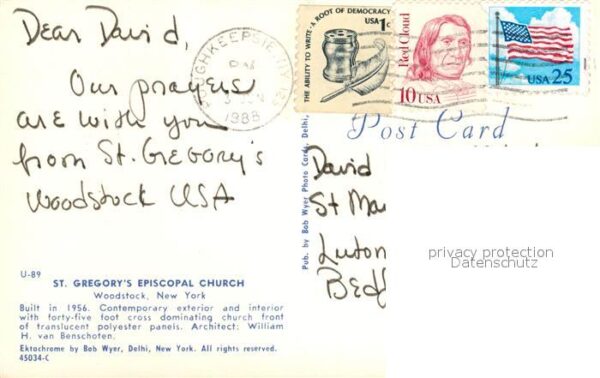 Dear David,
Our prayers
are with you
from St. Gregory's
Woodstock USA
U-89
ST. GREGORY'S EPISCOPAL CHURCH
Woodstock, New York
Built in 1956. Contemporary exterior and interior
with forty-five foot cross dominating church front
of translucent polyester panels. Architect: William
H. van Benschoten.
Ektachrome by Bob Wyer, Delhi, New York. All rights reserved.
45034-C
Pub. by Bob Wyer Photo Cards, Delhi,
POUGHKEEPSIE, NY
PM
1988
THE ABILITY TO WRITE · A ROOT OF DEMOCRACY
USA 1c
Red Cloud
10 USA
USA 25
Post Card
David
St
Luton
privacy protection
Datenschutz